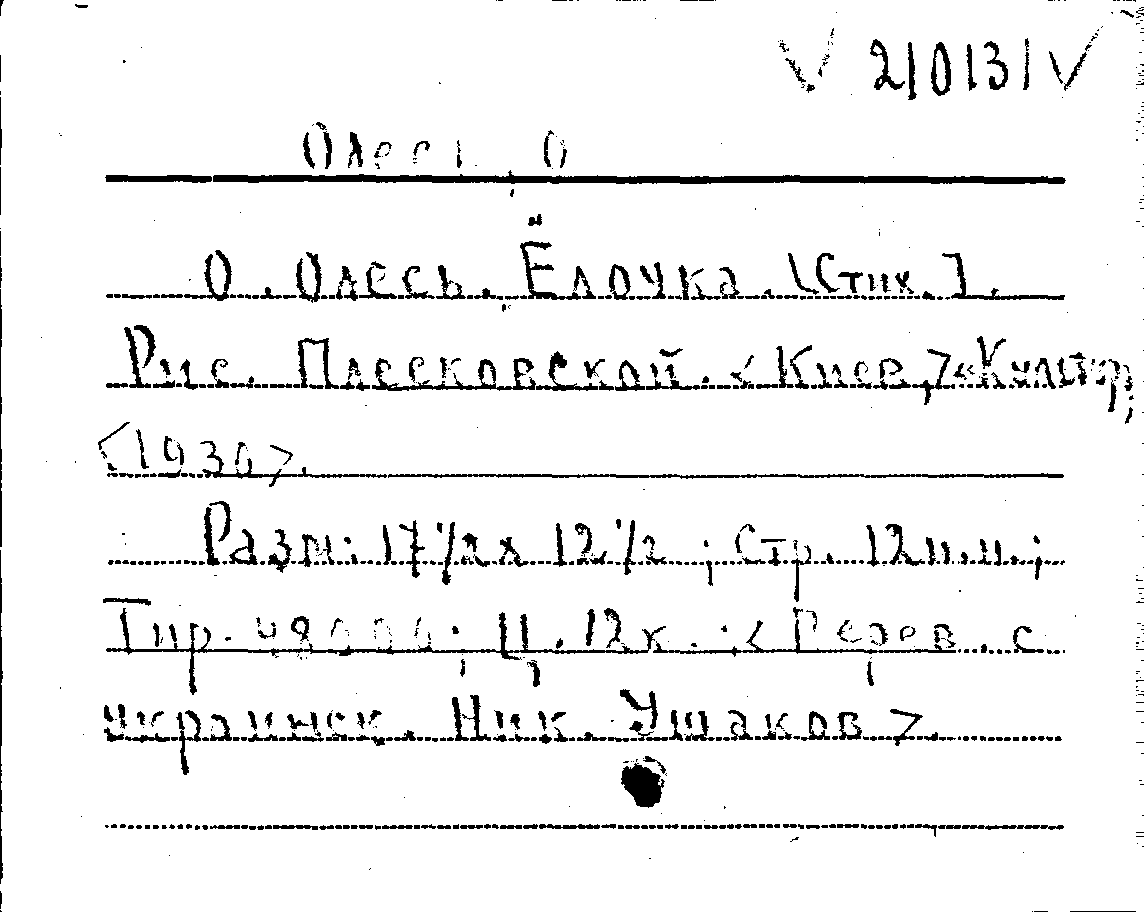 V 2/013/V
Олесь, О
О. Олесь. Ёлочка. [Стих.].
Рис. Плесковской. <Киев,> «Культура»,
<1930>.
Разм: 17 1/2 х 12 1/2; Стр. 12 н.н.;
Тир. 48000; Ц. 12к.; <Перев. с
украинск. Ник. Ушаков>.